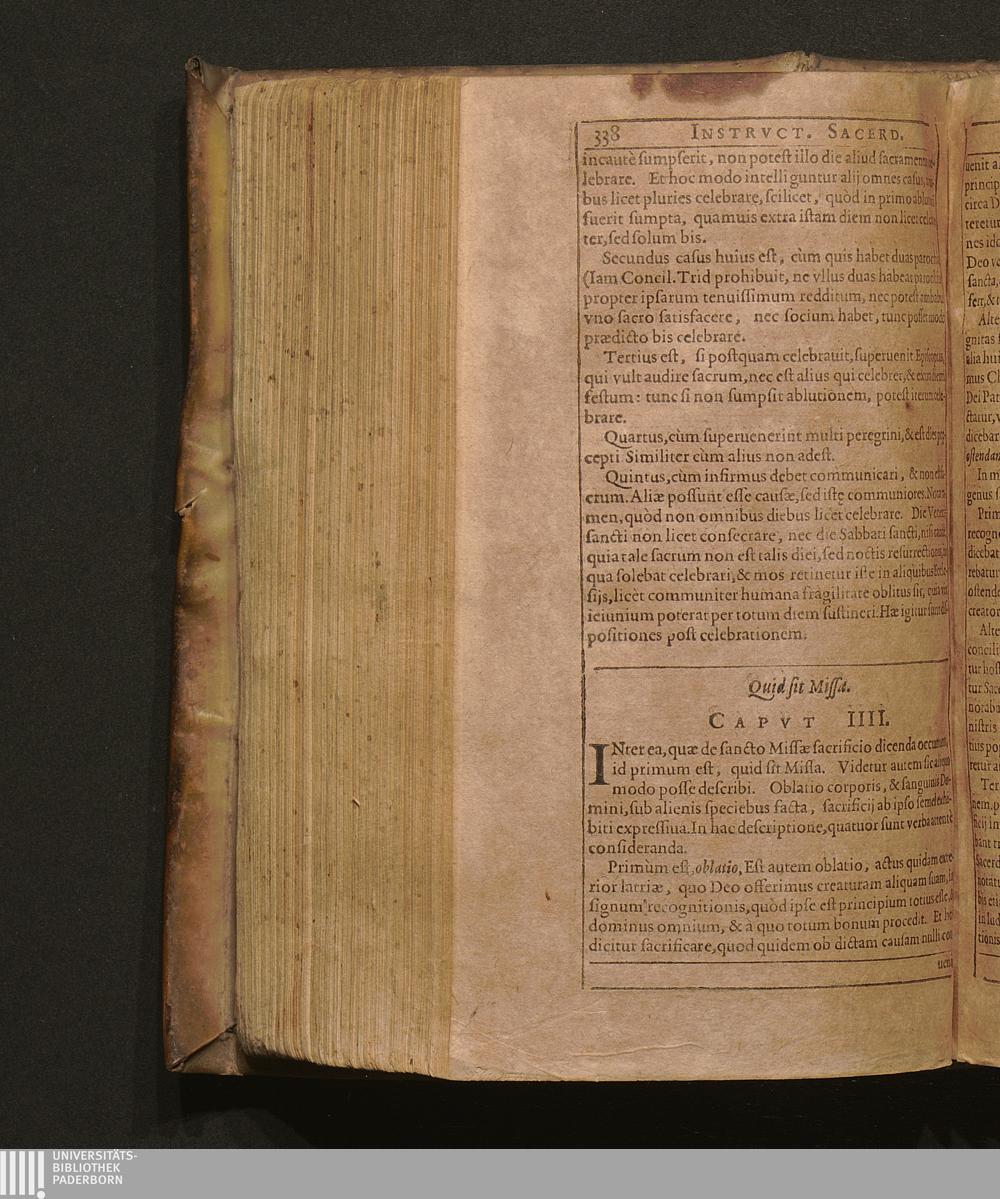 338 INSTRVCT. SACERD.
incautè ſumpſerit, non poteſt illo die aliud ſacramentũ
lebrare. Et hoc modo intelliguntur alij omnes caſus,
bus licet pluries celebrare, ſcilicet, quòd in primo
fuerit ſumpta, quamuis extra iſtam diem non licet
ter, ſed ſolum bis.
Secundus caſus huius eſt, cùm quis habet duas
(Iam Concil. Trid prohibuit, ne vllus duas habeat
propter ipſarum tenuiſſimum redditum, nec poteſt ambabus
vno ſacro ſatisfacere, nec ſocium habet, tunc poſſet modo
prædicto bis celebrare.
Tertius eſt, ſi poſtquam celebrauit, ſuperuenit Epiſcopus,
qui vult audire ſacrum, nec eſt alius qui celebret, &
feſtum: tunc ſi non ſumpſit ablutionem, poteſt iterum cele-
brare.
Quartus, cùm ſuperuenerint multi peregrini, & eſt dies
cepti Similiter cùm alius non adeſt.
Quintus, cùm infirmus debet communicari, & non eſt
crum. Aliæ poſſunt eſſe cauſæ, ſed iſtę communiores.
men, quòd non omnibus diebus licet celebrare. Die
ſancti non licet conſecrare, nec die Sabbati ſancti, niſi
quia tale ſacrum non eſt talis diei, ſed noctis reſurrectionis,
qua ſolebat celebrari, & mos retinetur iſte in aliquibus
ſijs, licèt communiter humana fragilitate oblitus ſit,
ieiunium poterat per totum diem ſuſtineri. Hæ igitur ſunt diſ-
poſitiones poſt celebrationem.
Quid ſit Miſſa.
CAPVT IIII.
INter ea, quæ de ſancto Miſſæ ſacrificio dicenda
id primum eſt, quid ſit Miſſa. Videtur autem ſic aliquo
modo poſſe deſcribi. Oblatio corporis, & ſanguinis Do-
mini, ſub alienis ſpeciebus facta, ſacrificij ab ipſo ſemel exhi-
biti expreſſiua. In hac deſcriptione, quatuor ſunt verba attentè
conſideranda.
Primùm eſt, oblatio, Eſt autem oblatio, actus quidam exte-
rior latriæ, quo Deo offerimus creaturam aliquam ſuam, in
ſignum recognitionis, quòd ipſe eſt principium totius eſſe,
dominus omnium, & à quo totum bonum procedit. Et hoc
dicitur ſacrificare, quod quidem ob dictam cauſam nulli con
uenit
uenit a
princip
circa D
teretur
nes ido
Deo ve
ſancta,
Alte
gnitas
alia hui
mus Cl
Dei Pat
dicebar
oſtendan
In m
genus ſ
Prim
recogn
dicebat
rebatur
oſtende
creator
Alte
concili
tur hoſt
tur Sac
notaba
niſtris
tius po
retur a
Ter
nem, p
ficij in
bant tr
Sacerd
notatu
bis eti
in Iud
tionis
UNIVERSITÄTS-
BIBLIOTHEK
PADERBORN